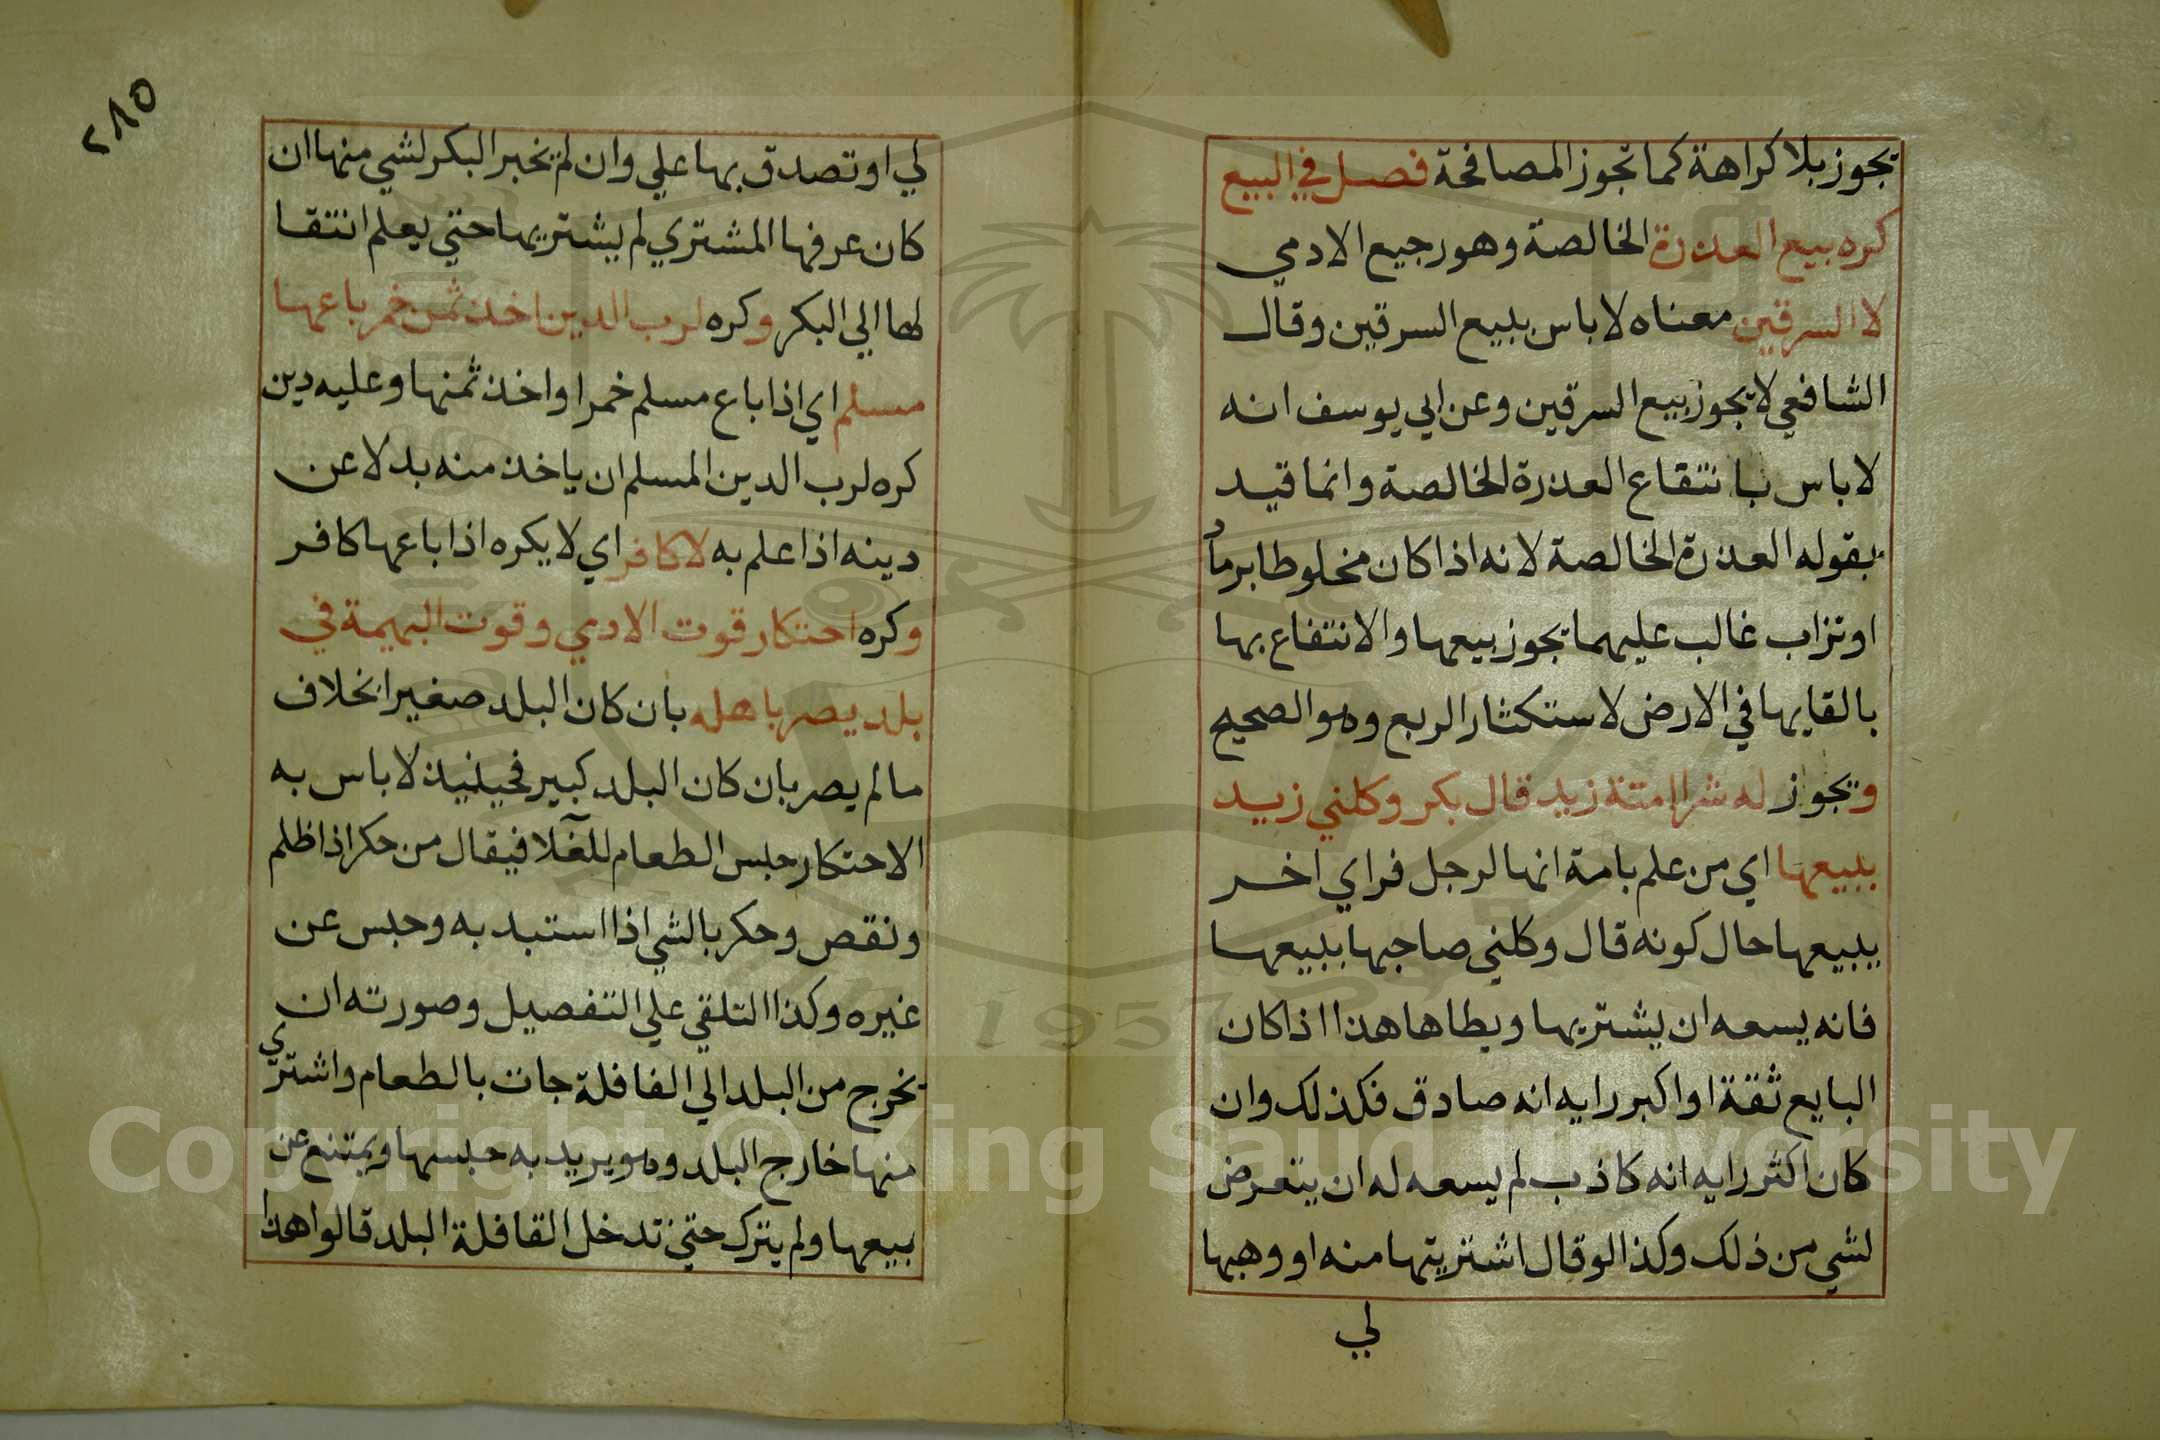 تجوز بلا كراهة كما تجوز المصافحة فصل في البيع
كره بيع العذرة الخالصة وهو رجيع الادمي
لا السرقين معناه لا باس ببيع السرقين وقال
الشافعي لا يجوز بيع السرقين وعن ابي يوسف انه
لا باس بانتقاع العذرة الخالصة وانما قيد
بقوله العذرة الخالصة لانه اذا كان مخلوطا برماد
او تراب غالب عليهما تجوز بيعها والانتفاع بها
بالقايها في الارض لاستكثار الريع وهو الصحيح
وتجوز له شرا امتة زيد قال بكر وكلني زيد
ببيعها اي من علم بامة انها لرجل فراي اخر
يبيعها حال كونه قال وكلني صاحبها ببيعها
فانه يسعه ان يشتريها ويطاها هذا اذا كان
البايع ثقة او اكبر رايه انه صادق فكذلك وان
كان اكثر رايه انه كاذب لم يسعه له ان يتعرض
لشي من ذلك وكذا لو قال اشتريتها منه او وهبها
لي
٢٨٥
لي او تصدق بها علي وان لم يخبر البكر لشي منها ان
كان عرفها المشتري لم يشتريها حتي يعلم انتقا
لها الي البكر وكره لرب الدين اخذ ثمن خمر باعها
مسلم اي اذا باع مسلم خمرا واخذ ثمنها وعليه دين
كره لرب الدين المسلم ان ياخذ منه بدلا عن
دينه اذا علم به لا كافر اي لا يكره اذا باعها كافر
وكره احتكار قوت الادمي وقوت البهيمة في
بلد يضر باهله بان كان البلد صغيرا بخلاف
ما لم يضر بان كان البلد كبير فحينيذ لا باس به
الاحتكار حبس الطعام للغلا فيقال من حكر اذا ظلم
ونقص وحكر بالشي اذا استبد به وحبس عن
غيره وكذا التلقي علي التفصيل وصورته ان
تخرج من البلد الي القافلة جات بالطعام واشتري
منها خارج البلد وهو يريد به حبسها ويمتنع عن
بيعها ولم يترك حتي تدخل القافلة البلد قالوا هذا
1957
Copyright © King Saud University